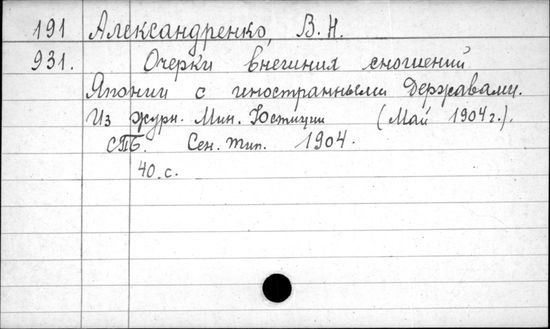 191 Александренко, В. Н.
931. Очерки внешних сношений
Японии с иностранными державами.
Из журн. Мин. Юстиции (Май 1904 г.).
СПБ. Сен. тип. 1904.
40. с.